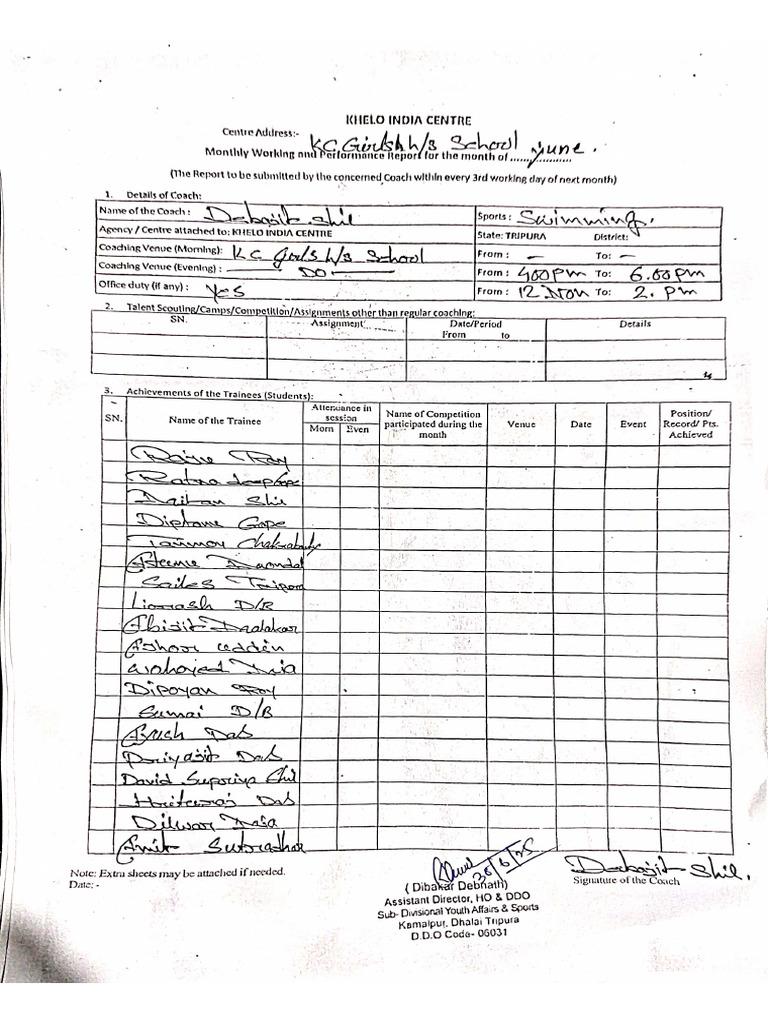 KHELO INDIA CENTRE
Centre Address:- K.C Girls H/S School
Monthly Working and Performance Report for the month of ...... June.
(The Report to be submitted by the concerned Coach within every 3rd working day of next month)
1. Details of Coach:
Name of the Coach : Debajit Shil Sports : Swimming.
Agency / Centre attached to: KHELO INDIA CENTRE State: TRIPURA District:
Coaching Venue (Morning): K C Girls h/s School From : — To: —
Coaching Venue (Evening) : —— DO —— From : 400 pm To: 6.00 pm
Office duty (if any) : Yes From : 12 Non To: 2. pm
2. Talent Scouting/Camps/Competition/Assignments other than regular coaching:
SN. Assignment Date/Period From to Details
3. Achievements of the Trainees (Students):
SN. Name of the Trainee Attenuance in session Morn Even Name of Competition participated during the month Venue Date Event Position/ Record/ Pts. Achieved
Raju Roy
Ratna
Shil
Diptanu Gope
Tanmoy Chakraborty
Sailes Tripura
D/B
Abijit
Uddin
Mia
Dipoyan Roy
Sumai D/B
Das
Priyajit Das
David Suporiya Shil
Das
Dilwar Mia
Amit Sutradhar
Note: Extra sheets may be attached if needed.
Date: -
30/6/25
Debajit Shil.
Signature of the Coach
( Dibakar Debnath)
Assistant Director, HO & DDO
Sub- Divisional Youth Affairs & Sports
Kamalpur, Dhalai Tripura
D.D.O Code- 06031